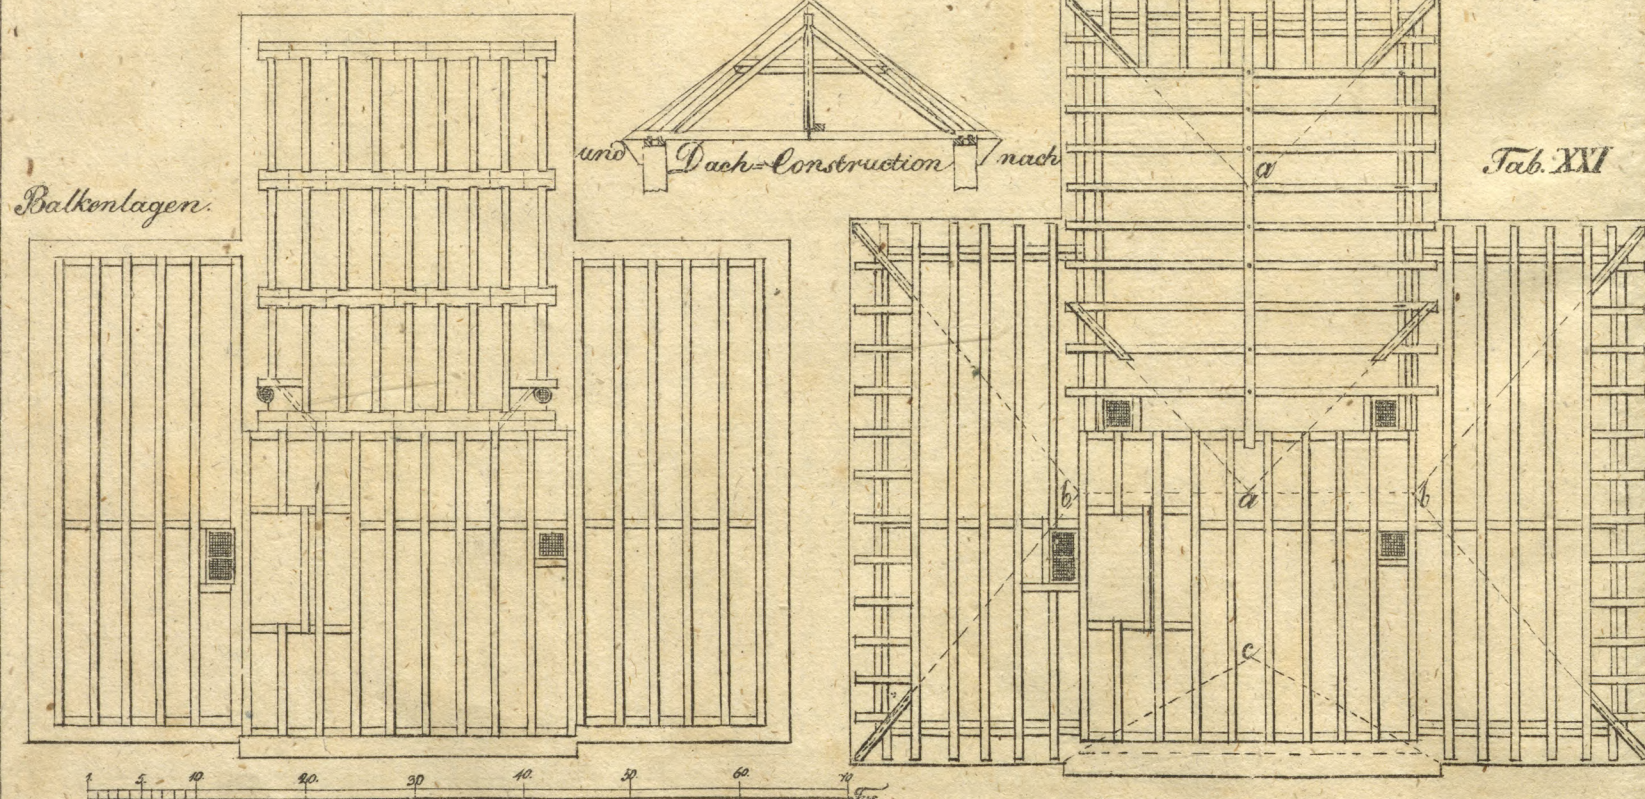 Balkenlagen.
und Dach-Construction nach
Tab. XXI
a
b a b
c
1 5. 10. 20. 30 40. 50. 60. 70